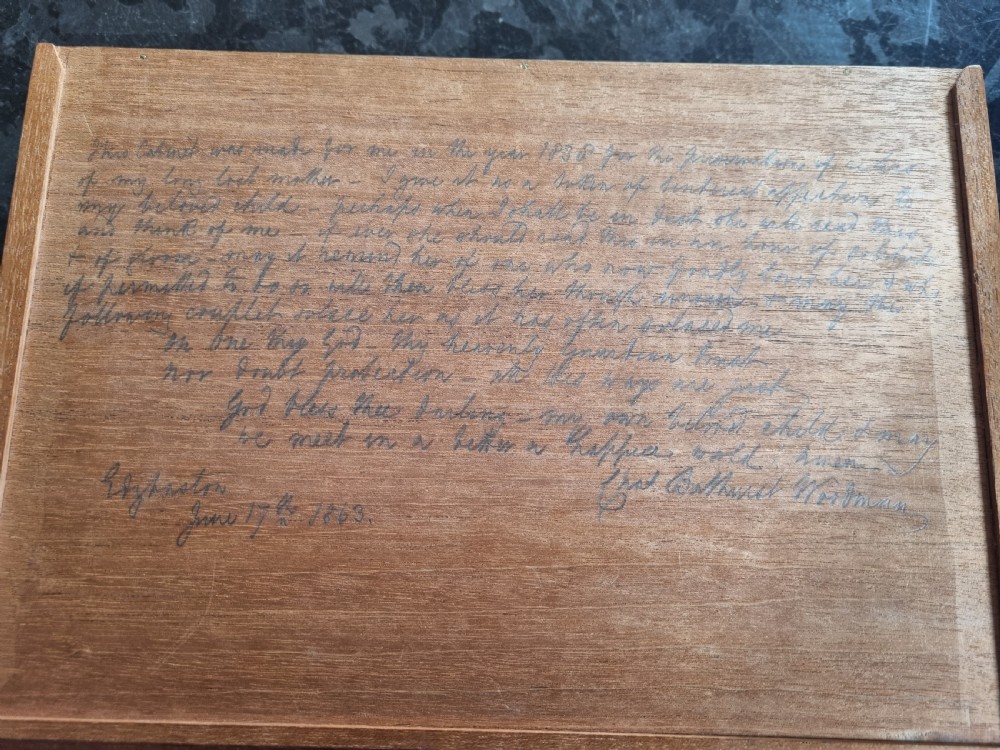 This Cabinet was made for me in the year 1838 for the preservation of
of my long lost mother – I give it as a token of tenderest affection to
my beloved child – perhaps when I shall be in dust she will read this
and think of me – if ever she should read this in an hour of
& of gloom – may it remind her of one who now fondly loves her &
if permitted to do so will then bless her though unseen & may the
following couplet solace her as it has often solaced me
In One thy God – thy heavenly Guardian trust
nor doubt protection – all his ways are just
God bless thee darling – my own beloved child & may
we meet in a better & happier world. Amen
Edgbaston Chas. Bathurst Woodman
June 17th 1863.